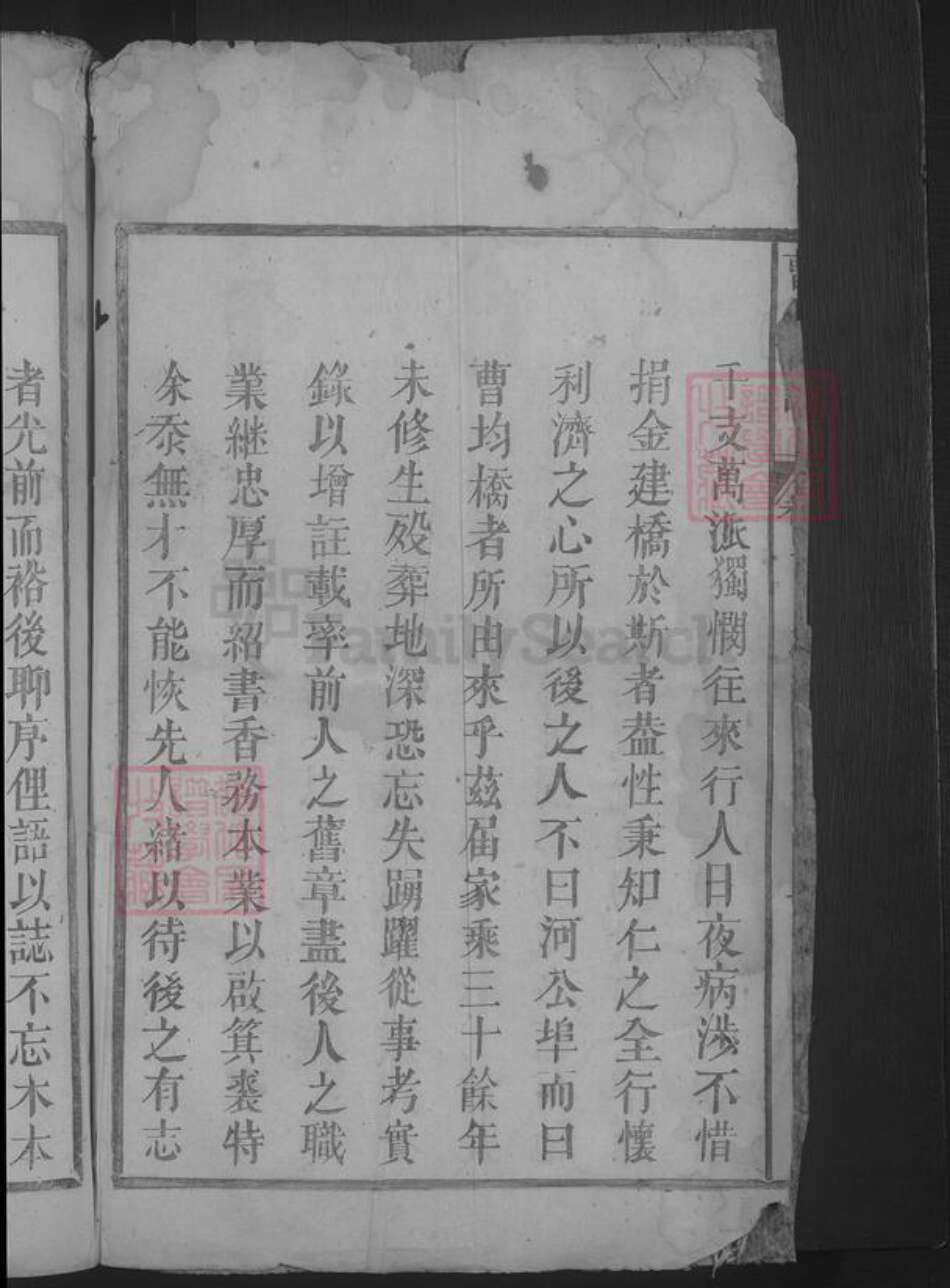 千支萬派獨憫往來行人日夜病涉不惜
捐金建橋於斯者葢性秉知仁之全行懷
利濟之心所以後之人不曰河公埠而曰
曹均橋者所由來乎茲屆家乘三十餘年
未修生殁葬地深恐忘失踴躍從事考實
錄以增註載率前人之舊章盡後人之職
業継忠厚而紹書香務本業以啟箕裘特
余忝無才不能恢先人緒以待後之有志
者光前而裕後聊序俚語以誌不忘木本
FamilySearch